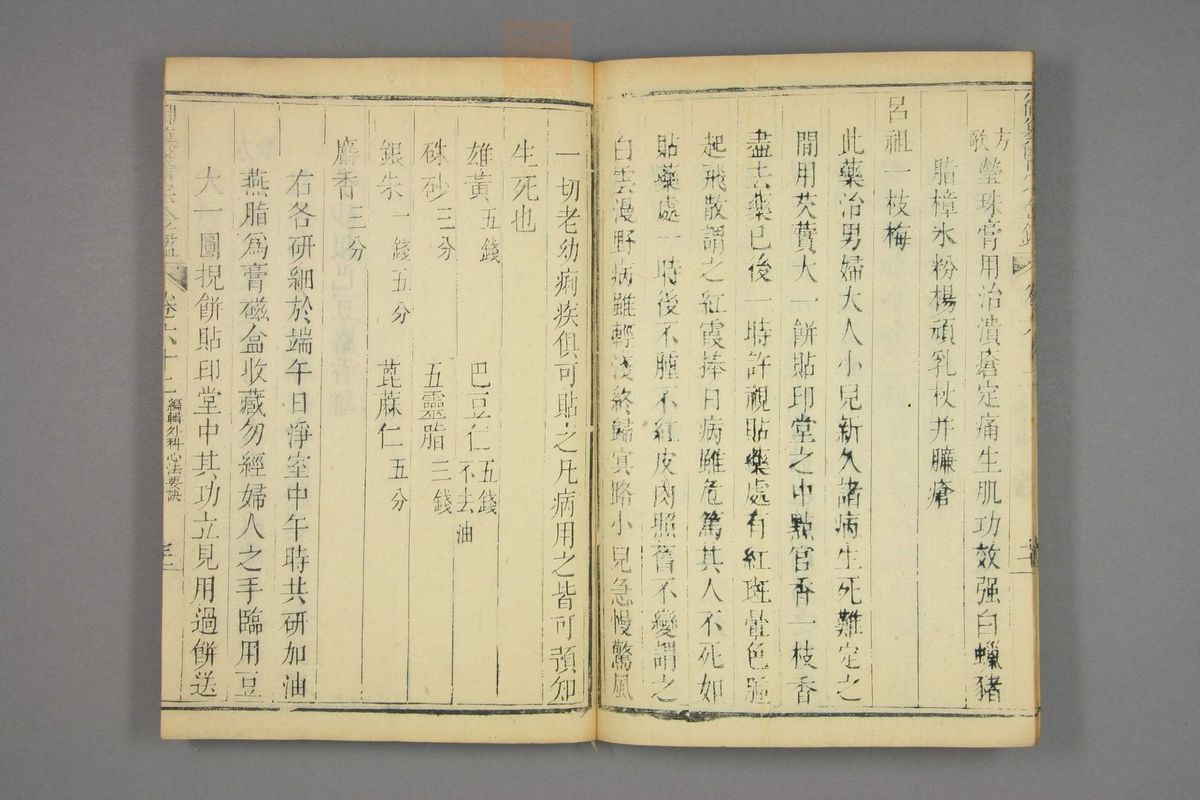 方歌
瑩珠膏用治潰瘡定痛生肌功效强白蠟猪
脂樟氷粉楊頑乳杖并臁瘡
呂祖一枝梅
此藥治男婦大人小兒新久諸病生死難定之
間用芡實大一餅貼印堂之中點官香一枝香
盡去藥已後一時許視貼藥處有紅斑暈色腫
起飛散謂之紅霞捧日病雖危篤其人不死如
貼藥處一時後不腫不紅皮肉照舊不變謂之
白雲漫野病雖輕淺終歸冥路小兒急慢驚風
一切老幼痢疾俱可貼之凡病用之皆可預知
生死也
雄黃五錢 巴豆仁五錢不去油
硃砂三分 五靈脂三錢
銀朱一錢五分 蓖蔴仁五分
麝香三分
右各研細於端午日淨室中午時共研加油
燕脂爲膏磁盒收藏勿經婦人之手臨用豆
大一圓揑餅貼印堂中其功立見用過餅送
卷六十二 編輯外科心法要訣